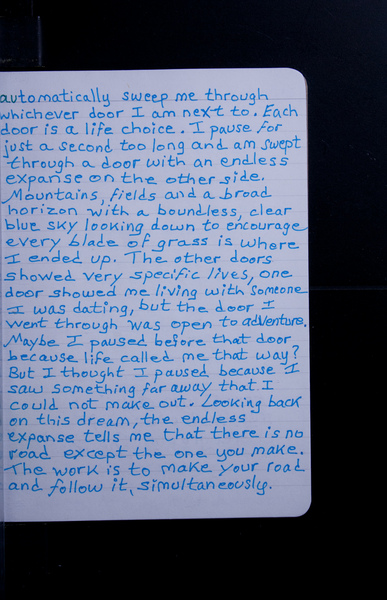 automatically sweep me through
whichever door I am next to. Each
door is a life choice. I pause for
just a second too long and am swept
through a door with an endless
expanse on the other side.
Mountains, fields and a broad
horizon with a boundless, clear
blue sky looking down to encourage
every blade of grass is where
I ended up. The other doors
showed very specific lives, one
door showed me living with someone
I was dating, but the door I
went through was open to adventure.
Maybe I paused before that door
because life called me that way?
But I thought I paused because I
saw something far away that I
could not make out. Looking back
on this dream, the endless
expanse tells me that there is no
road except the one you make.
The work is to make your road
and follow it, simultaneously.